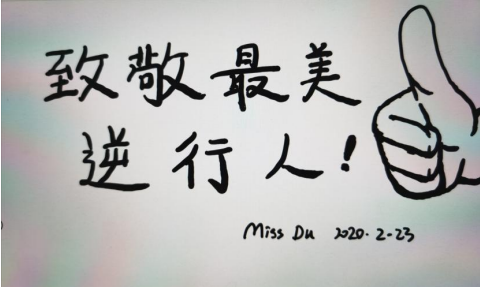 致敬最美
逆行人!
Miss Du 2020.2-23